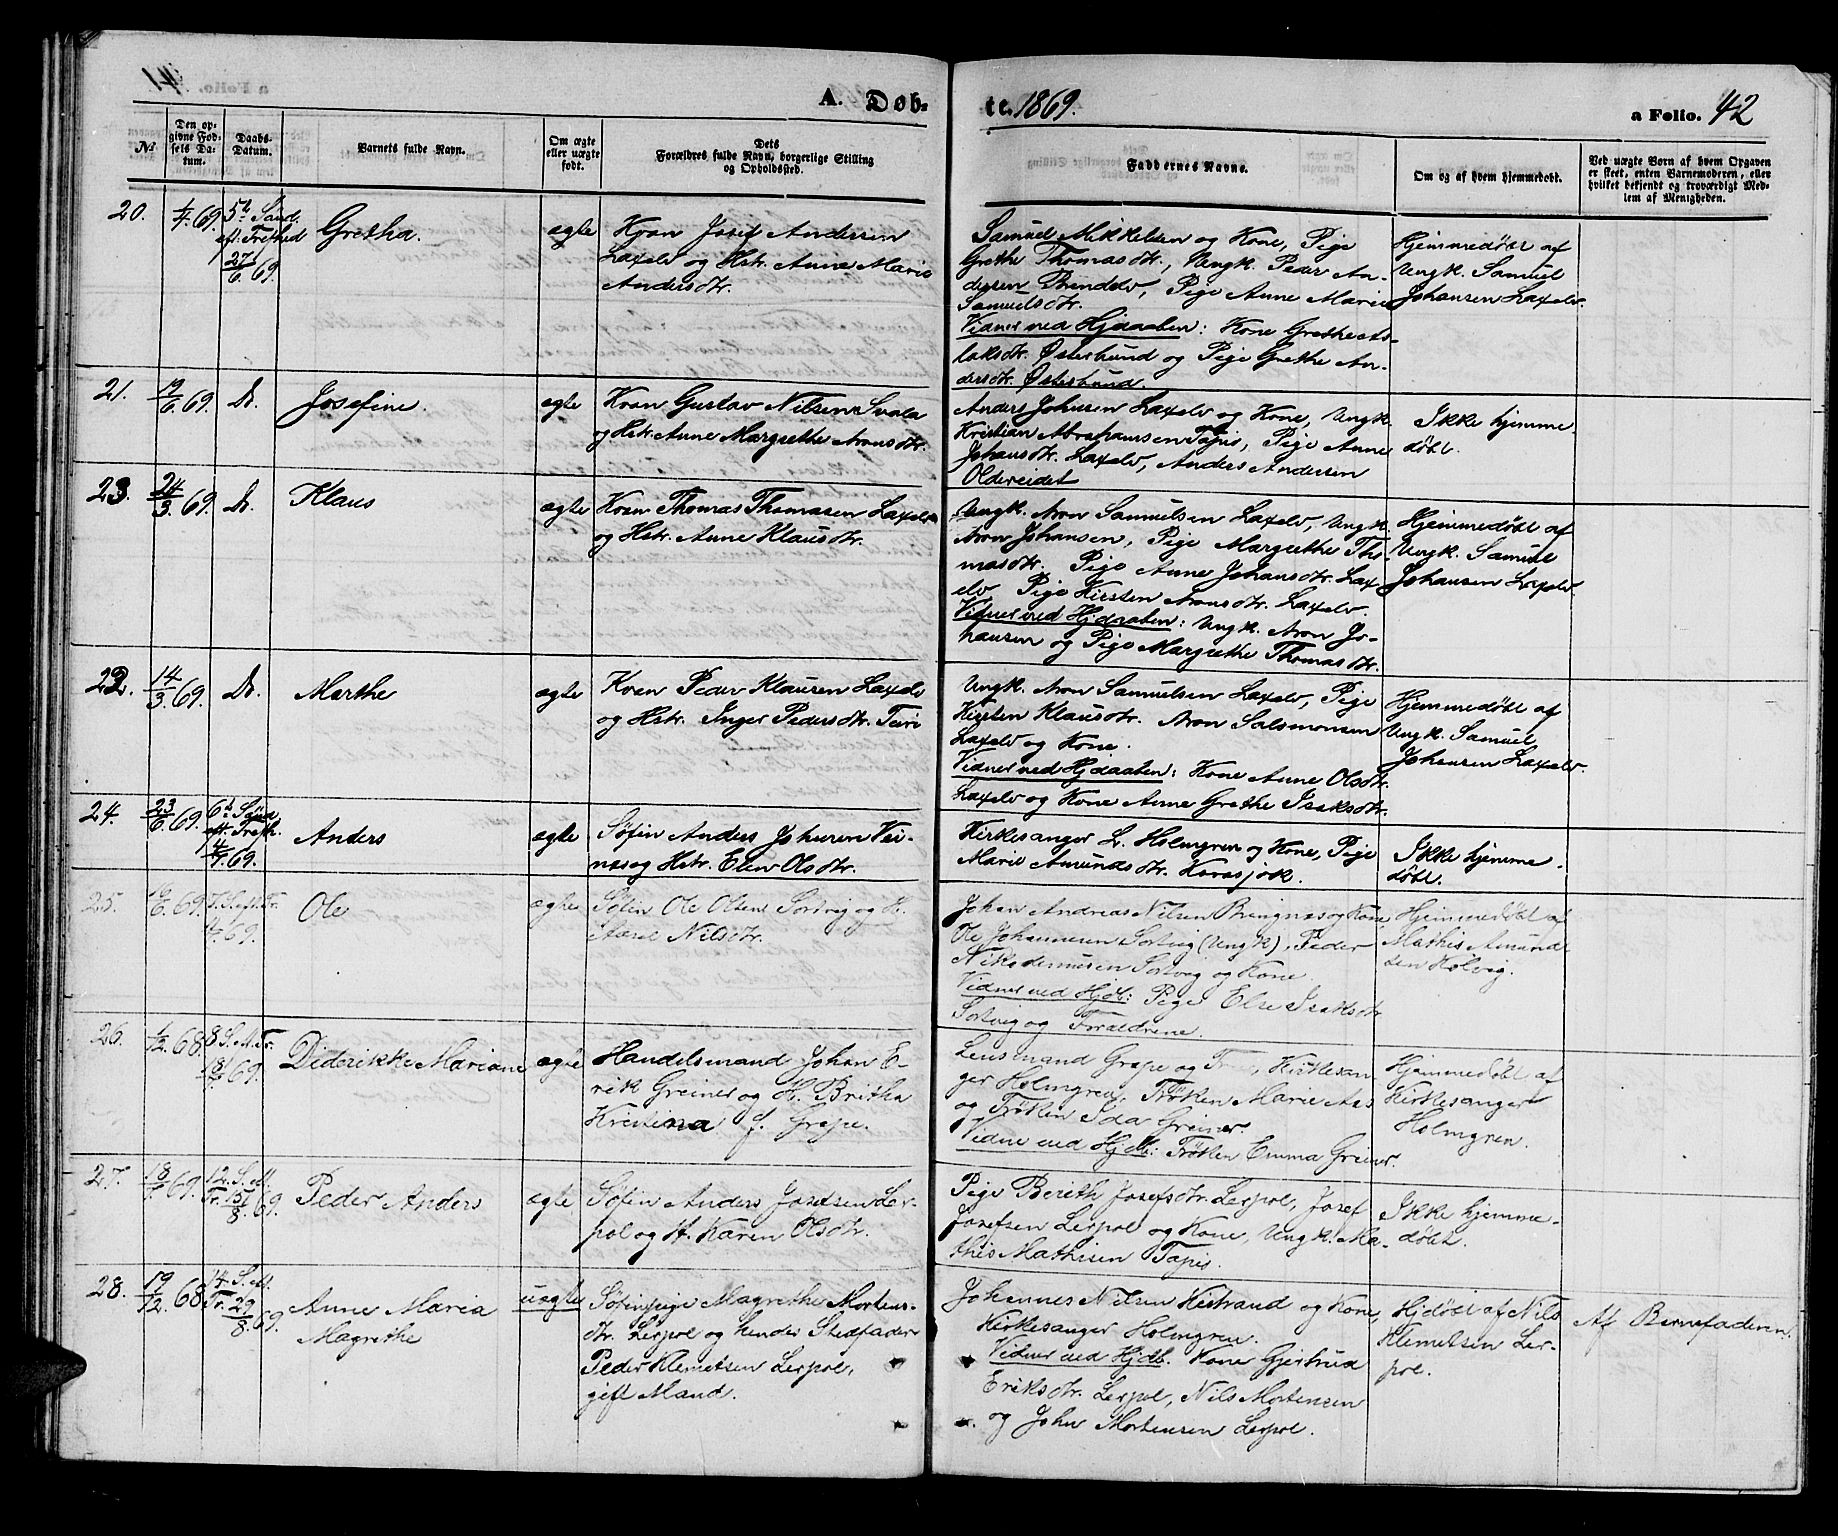 A. Døb- te. 1869. a Folio. 42
№
Den opgivne Fødsels Datum.
Daabs-Datum.
Barnets fulde Navn.
Om ægte eller uægte født.
Dets Forældres fulde Navn, borgerlige Stilling og Opholdssted.
Faddernes Navne.
Om og af hvem hjemmedøbt.
Ved uægte Børn af hvem Opgaven er skeet, enten Barnemoderen, eller hvilket bekjendt og troværdigt Medlem af Menigheden.
20. 1/4 69. 5te Sønd. eft. Trefhed 27/6 69. Gretha. ægte
Kvæn Josef Andersen
Laxelv og Hstr. Anne Marie
Andersdtr.
Samuel Mikkelsen og Kone, Pige
Grethe Thomasdtr., Ungk. Peder An-
dersen Brændelv, Pige Anne Marie
Samuelsdtr.
Vidner ved Hjdaaben: Kone Grethe As-
laksdtr. Østerbund og Pige Grethe An-
dersdtr. Østerbund.
Hjemmedøbt af
Ungk. Samuel
Johansen Laxelv.
21. 17/6 69. Do. Josefine. ægte
Kvæn Gustav Nilsen Svala
og Hstr. Anne Margrethe Aronsdtr.
Anders Johnsen Laxelv og Kone, Ungk.
Kristian Abrahamsen Tapis, Pige Anne
Johansdtr. Laxelv, Anders Andersen
Oldereidet
Ikke hjemme-
døbt.
23. 24/3 69. Do. Klaus ægte
Kvæn Thomas Thomasen Laxelv
og Hstr. Anne Klausdtr.
Ungk. Aron Samuelsen Laxelv, Ungk.
Aron Johansen, Pige Margrethe Tho-
masdtr. Pige Anne Johansdtr. Lax-
elv Pige Kirsten Aronsdtr. Laxelv.
Vidner ved Hjdaaben: Ungk. Aron Jo-
hansen og Pige Margrethe Thomasdtr.
Hjemmedøbt af
Ungk. Samuel
Johansen Laxelv
22. 14/3 69. Do. Marthe ægte
Kvæn Peder Klausen Laxelv
og Hstr. Inger Pedersdtr. Teiri
Ungk. Aron Samuelsen Laxelv, Pige
Kirsten Klausdtr. Aron Salomonsen
Laxelv og Kone.
Vidner ved Hjdaaben: Kone Anne Olsdtr.
Laxelv og Kone Anne Grethe Isaksdtr.
Hjemmedøbt af
Ungk. Samuel
Johansen Laxelv.
24. 23/6 69. 6te Sønd. eft. Trefh. 4/7 69. Anders ægte
Søfin Anders Johnsen Vei-
næs og Hstr. Elen Olsdtr.
Kirkesanger L. Holmgren og Kone, Pige
Marie Amundsdtr. Karasjok.
Ikke hjemme-
døbt.
25. 69. 69. Ole ægte
Søfin Ole Olsen Sortvig og H.
Nilsdtr.
Johan Andreas Nilsen Bringnæs og Kone,
Ole Johannesen Sortvig (Ungk), Peder
Nikodemusen Sortvig og Kone.
Vidner ved Hjdb: Pige Else Isaksdtr
Sortvig og Forældrene.
Hjemmedøbt af
Mathis Amund-
sen Kolvig.
26. 1/12 68. 8 S. eft. Tr. 18/7 69. Diderikke Mariane ægte
Handelsmand Johan E-
rik Greiner og H. Britha
Kristina f. Grape.
Lensmand Grape og , Kirkesan-
ger Holmgren, Frøken Marie Aas
og Frøken Ida Greiner.
Vidne ved Hjdb: Frøken Emma Greiner.
Hjemmedøbt af
Kirkesanger
Holmgren.
27. 18/7 69. 12. S. eft. Tr. 15/8 69. Peder Anders ægte
Søfin Anders Josefsen Ler-
pol og H. Karen Olsdtr.
Pige Berith Josefsdtr. Lerpol, Josef
Josefsen Lerpol og Kone, Ungk. Ma-
this Mathisen Tapis.
Ikke hjemme-
døbt.
28. 19/12 68 14. S. eft. Tr. 29/8 69. Anne Maria
Magrethe
uægte
Søfinpige Magrethe Mortens-
dtr. Lerpol og hendes Stedfader
Peder Klemetsen Lerpol,
gift Mand.
Johannes Nilsen Kistrand og Kone,
Kirkesanger Holmgren.
Vidner ved Hjdb. Kone Gjertrud
Eriksdtr. Lerpol, Nils Mortensen
og John Mortensen Lerpol.
Hjdøbt af Nils
Klemetsen Ler-
pol.
Af Barnefaderen.